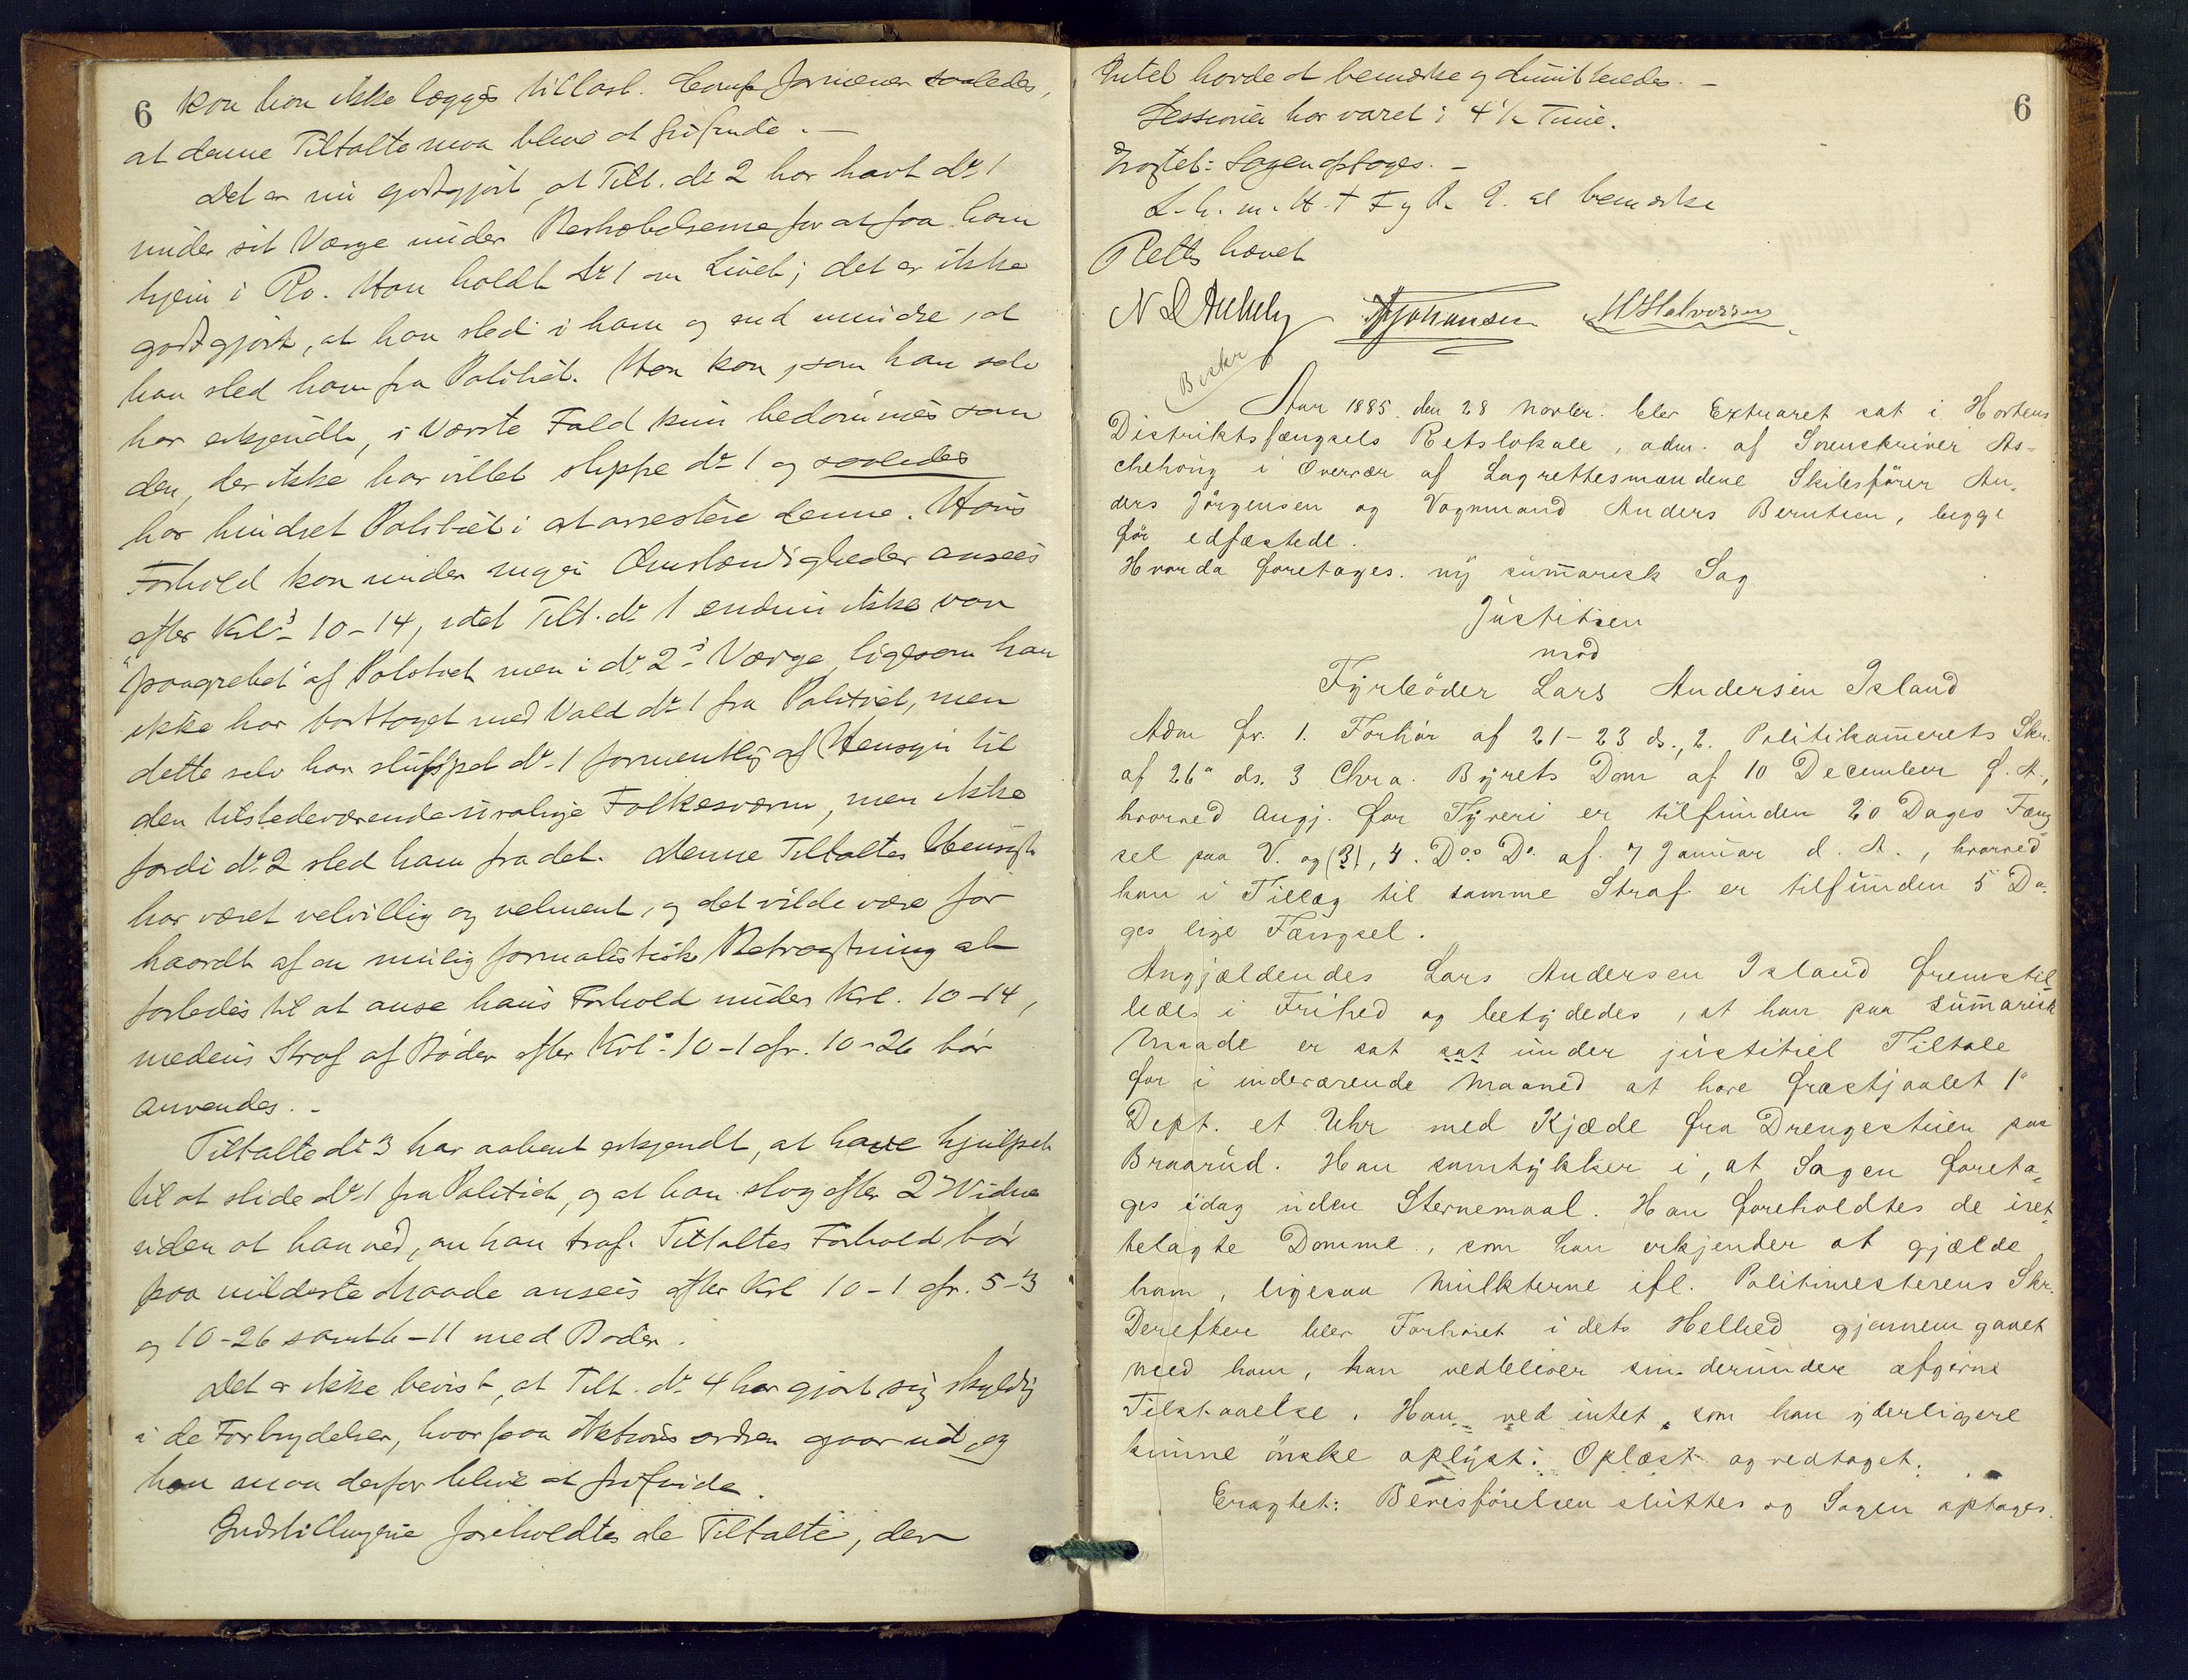 6
kan han ikke lægges tillast. Comp formener saaledes,
at denne Tiltalte maa blive at frifinde. —
Det er nu godtgjort, at Tilt. d: 2 har havt d: 1
under sit Værge under Bestræbelserne for at faa ham
hjem i Ro. Han holdt d: 1 om Livet; det er ikke
godtgjort, at han sled i ham og end mindre, at
han sled ham fra Politiet. Han kan, som han selv
har erkjendt, i værste Fald kun bedømmes som
den, der ikke har villet slippe d: 1 og saaledes
har hindret Politiet i at arrestere denne. Hans
Forhold kan under ingen Omstændigheder ansees
efter Krls 10-14, idet Tilt. d: 1 endnu ikke var
"paagrebet" af Politiet men i d: 2s Værge, ligesom han
ikke har borttaget med Vold d: 1 fra Politiet, men
dette selv har sluppet d: 1 formentlig af Hensyn til
den tilstedeværende urolige Folkesværm, men ikke
fordi d: 2 sled ham fra det. Denne Tiltaltes Hensigt
har været velvillig og velment, og det vilde være for
haardt af en mulig formalistisk Betragtning at
forledes til at anse hans Forhold under Krl. 10-14,
medens Straf af Bøder efter Krls 10-1 cfr. 10-26 bør
anvendes. -
Tiltalte d: 3 har aabent erkjendt, at have hjulpet
til at slide d: 1 fra Politiet, og at han slog efter 2 Vidne
uden at han ved, om han traf. Tiltaltes Forhold bør
paa mildeste Maade ansees efter Krl 10-1 cfr. 5-3
og 10-26 samt 6-11 med Bøder.
Det er ikke bevist, at Tilt. d: 4 har gjort sig skyldig
i de Forbrydelser, hvorpaa Aktionsordren gaar ud, og
han maa derfor blive at frifinde.
Indstillingerne foreholdtes de Tiltalte, der
6
Intet havde at bemærke og dimitteredes. —
Sessionen har varet i 4 1/2 Time.
Eragtet: Sagen optages. —
at bemærke
Retten hævet
Johansen
Halvorsen
Aar 1885. den 28 Novbr. blev Extraret sat i Hortens
Distriktsfængsels Retslokale, adm. af Sorenskriver As-
chehoug i Overvær af Lagrettesmændene Skibsfører An-
ders Jørgensen og Vognmand Anders Berntsen, begge
før edfæstede.
Hvorda foretages. ny summarisk Sag
Justitsen
mod
Fyrbøder Lars Andersen Island
Adm fr. 1. Forhør af 21-23 ds., 2. Politikammerets Skr.
af 26de ds. 3 Chra. Byrets Dom af 10 December f. A.,
hvorved Angj. for Tyveri er tilfunden 20 Dages Fæng
sel paa V. og (3), 4. Dos Do. af. 7 Januar d. A., hvorved
han i Tillæg til samme Straf er tilfunden 5 Da-
ges lige Fængsel.
Angjældendes Lars Andersen Island fremstil
ledes i Frihed og betydedes, at han paa summarisk
Maade er sat sat under justitiel Tiltale
for i inderværende Maaned at have frastjaalet 1ste
Dept. et Uhr med Kjæde fra Drengestuen paa
Braarud. Han samtykker i, at Sagen foreta-
ges idag uden Stevnemaal. Han foreholdtes de iret-
telagte Domme, som han erkjender at gjælde
ham, ligesaa Mulkterne ifl. Politimesterens Skr.
Derefter blev Forhøret i dets Helhed gjennemgaaet
med ham, han vedbliver sin derunder afgivne
Tilstaaelse. Han ved intet, som han yderligere
kunne ønske oplyst. Oplæst og vedtaget.
Eragtet: Bevisførelsen sluttes og Sagen optages.